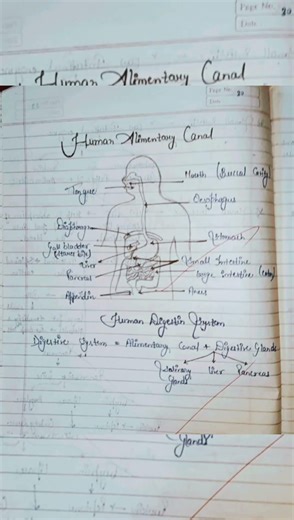 Page No. 20
Date
Human Alimentary Canal
Page No. 20
Date
Human Alimentary Canal
Mouth (Buccal Cavity)
Tongue
Oesophagus
Diaphragm
Stomach
Gall bladder
(stores bile)
Liver
Small Intestine
Pancreas
Large Intestine (colon)
Appendix
Anus
Human Digestive System
Digestive System = Alimentary Canal + Digestive Glands
Salivary Glands
Liver
Pancreas
Glands